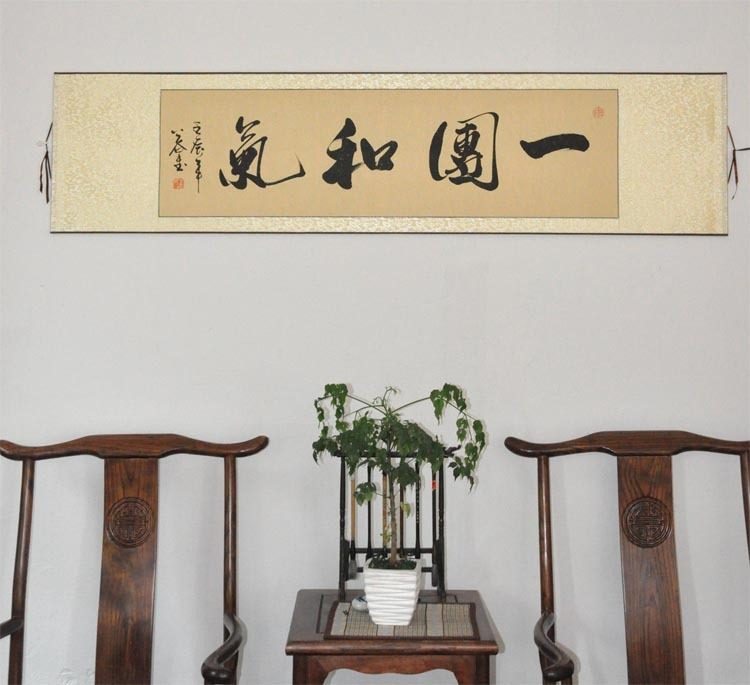 一團和氣
壬辰年